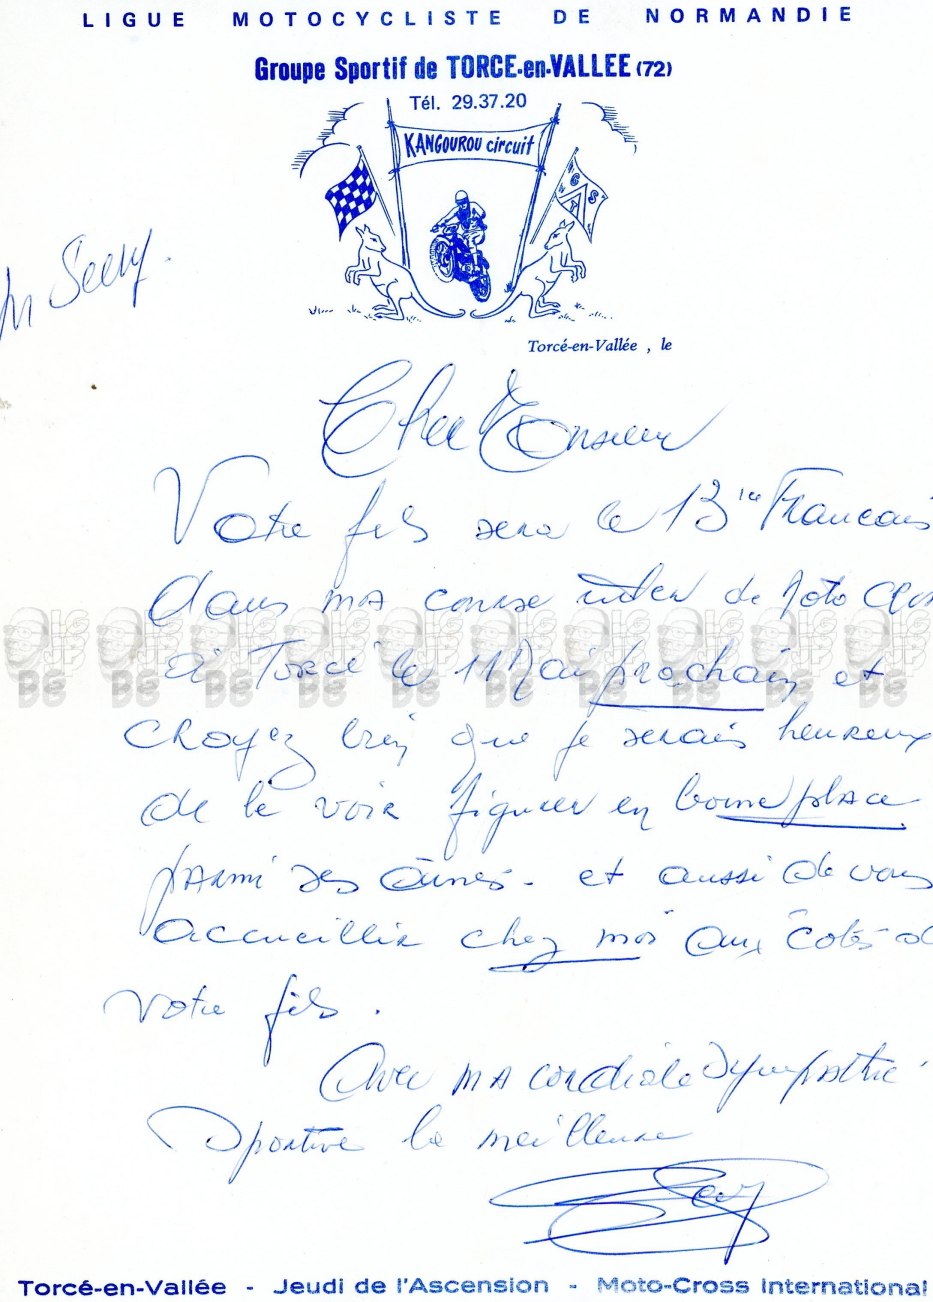 LIGUE MOTOCYCLISTE DE NORMANDIE
Groupe Sportif de TORCE-en-VALLEE (72)
Tél. 29.37.20
KANGOUROU circuit
G S T
Torcé-en-Vallée , le
Cher Monsieur
Votre fils sera le 13ie Francais
dans ma course inter de Moto Cros
à Torcé le 11 Mai prochain et
croyez bien que je serais heureux
de le voir figurer en bonne place
parmi ses ainés - et aussi de vous
accueillir chez moi aux côtés de
votre fils .
Avec ma cordiale sympathie
sportive la meilleure
Torcé-en-Vallée - Jeudi de l'Ascension - Moto-Cross International